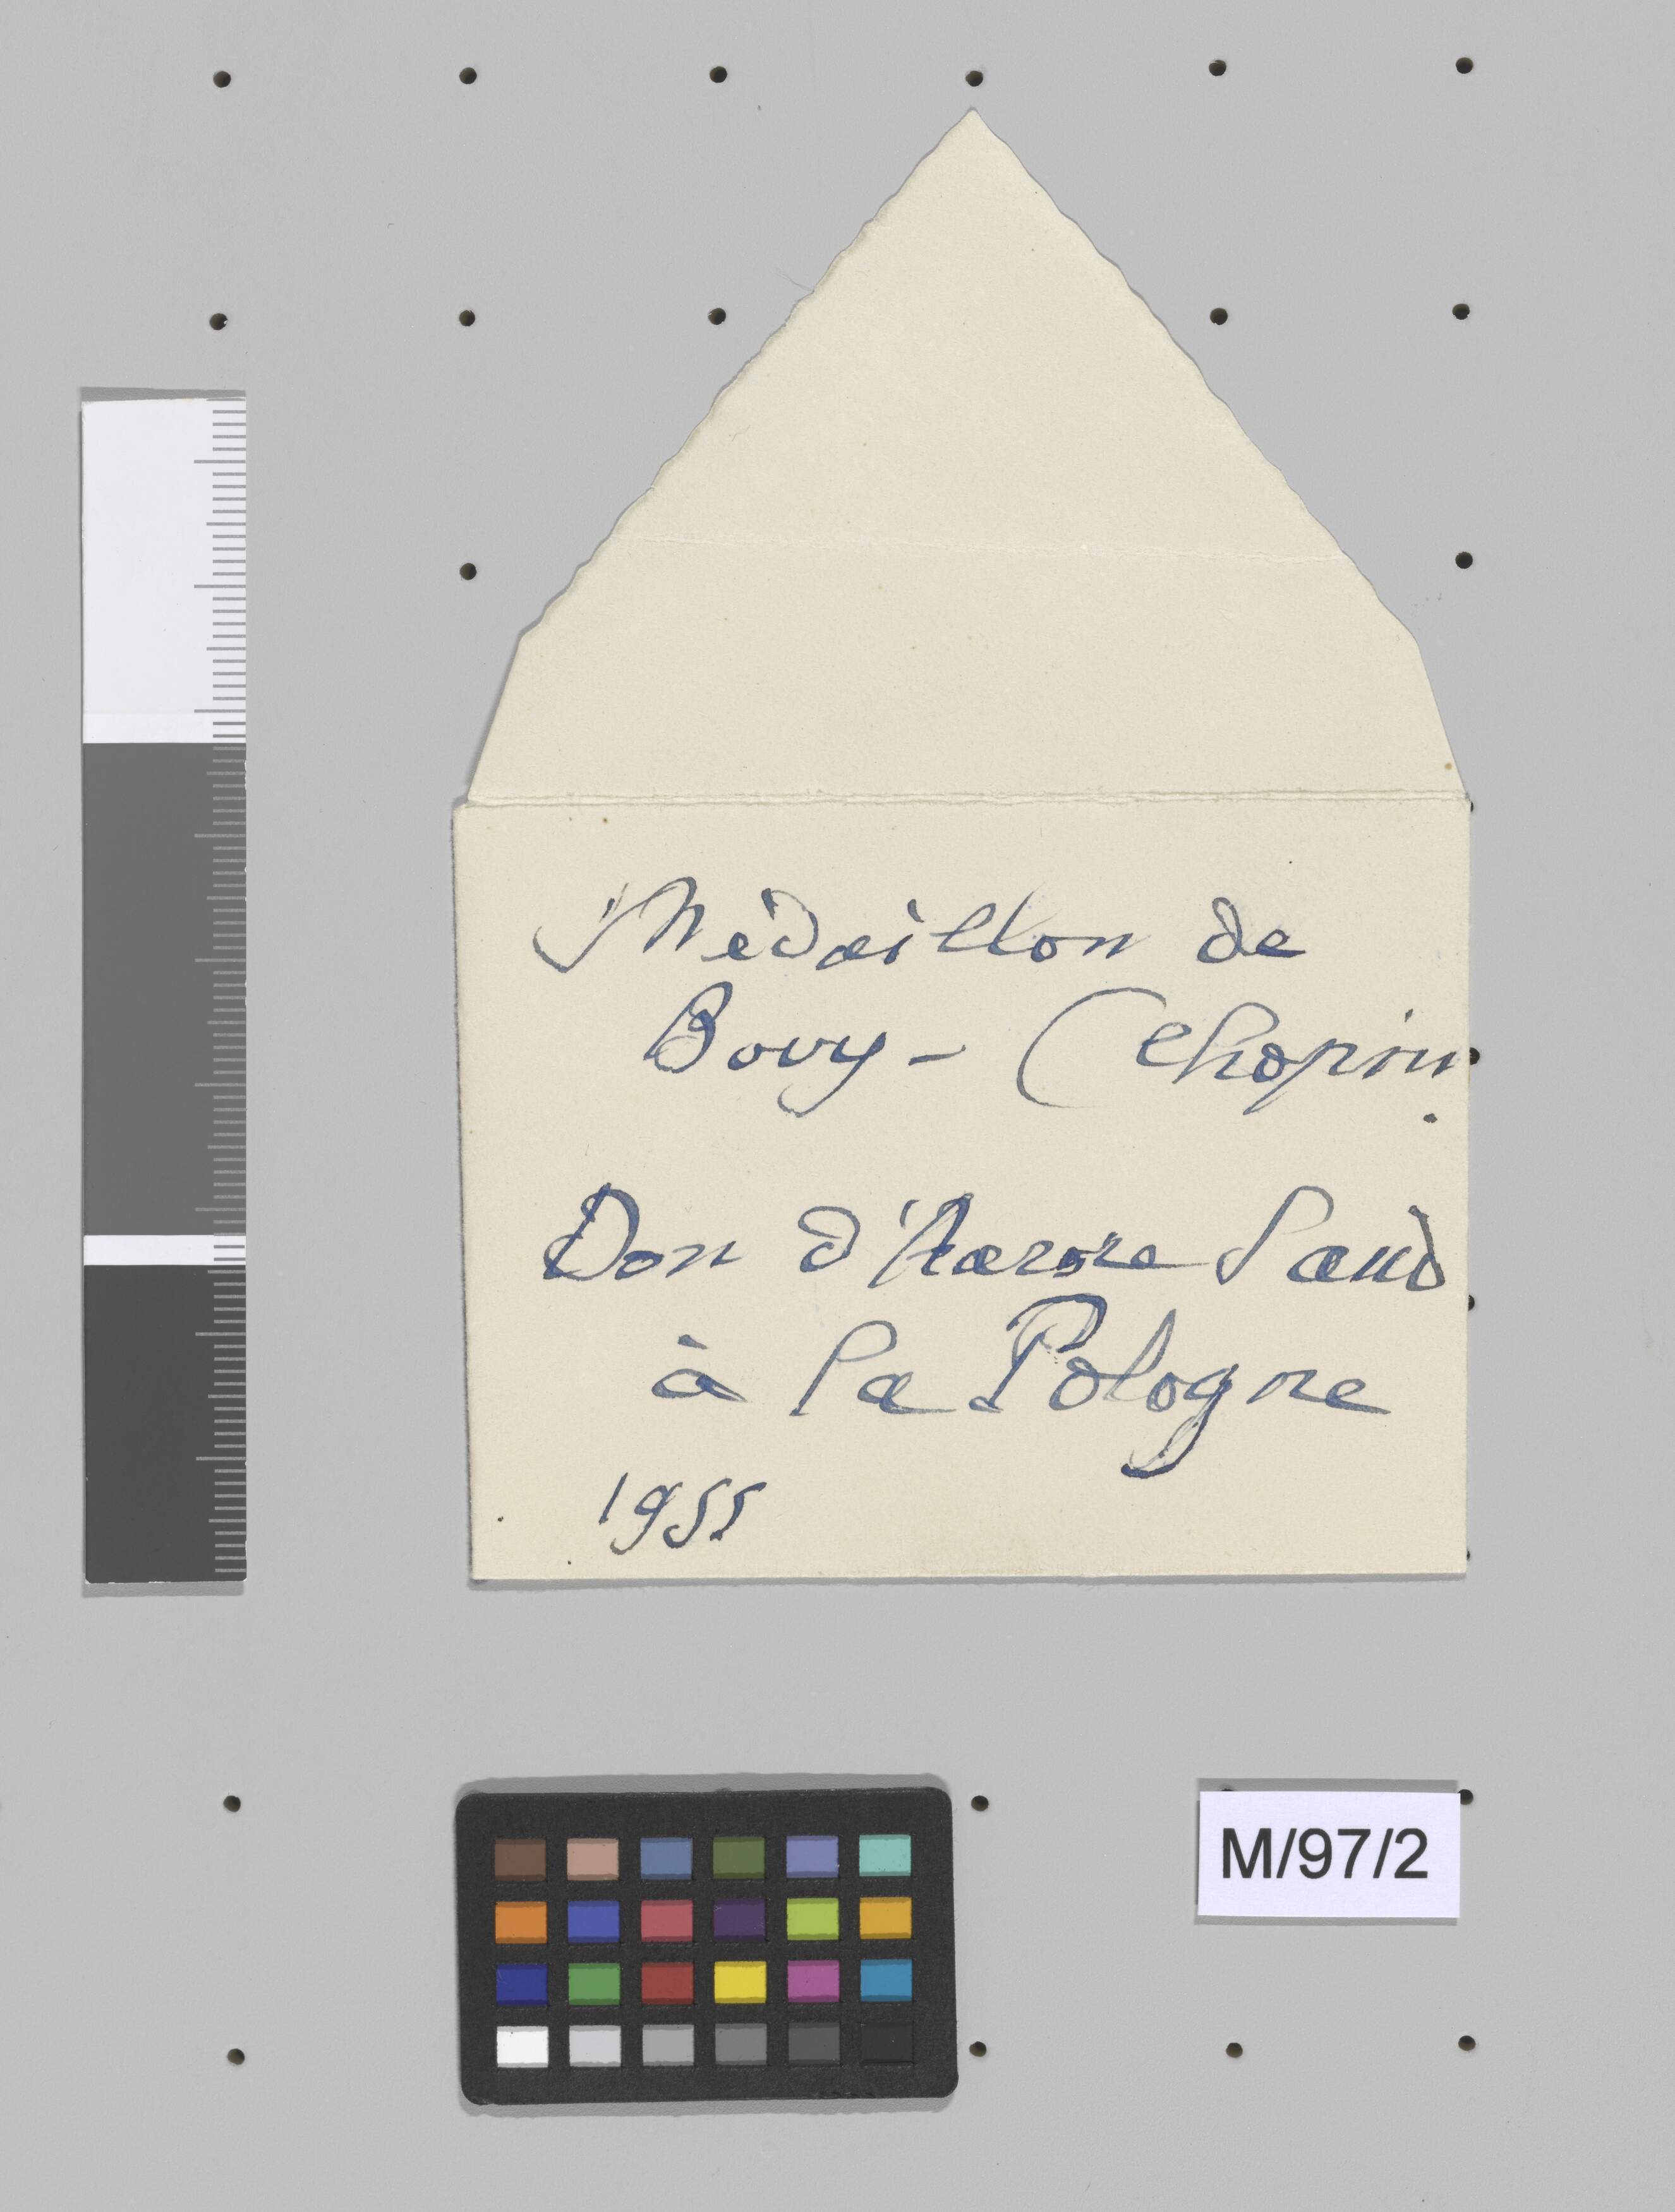 Médaillon de
Bovy - (Chopin
.
Don d'Aurore Sand
à la Pologne
1955
M/97/2